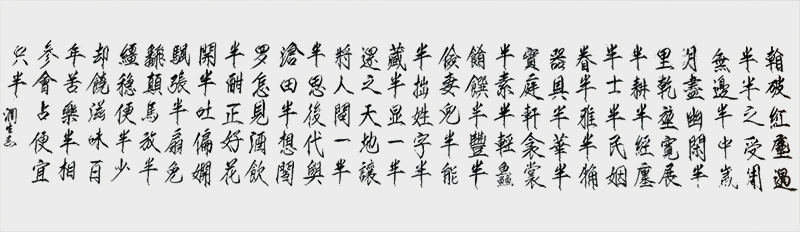 翰破紅塵過
半半之受用
無邊半中歲
月盡幽閒半
里乾堃寬展
半耕半經廛
半士半民姻
眷半雅半觕
器具半華半
實庭軒衾裳
半素半輕鱻
餚饌半豐半
儉妻兒半能
半拙姓字半
藏半显一半
還之天地讓
將人間一半
半思後代與
滄田半想閻
羅怎見酒飲
半酣正好花
開半吐偏嫻
颿張半扇免
飜顛馬放半
繮穩便半少
却饒滋味百
年苦樂半相
參會占便宜
只半